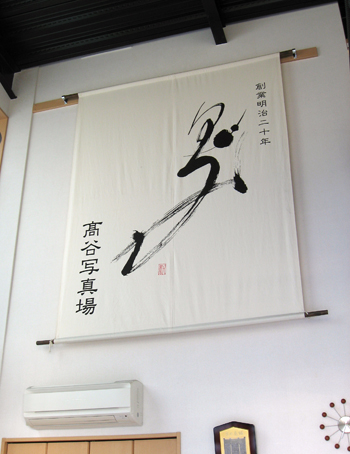 創業明治二十年
髙谷写真場